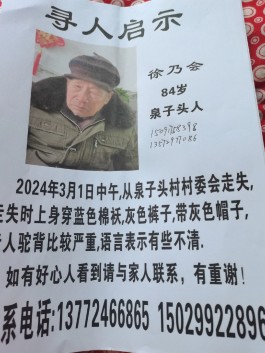 寻人启示
徐乃会
84岁
泉子头人
2024年3月1日中午,从泉子头村村委会走失,
走失时上身穿蓝色棉袄,灰色裤子,带灰色帽子,
人驼背比较严重,语言表示有些不清.
如有好心人看到请与家人联系，有重谢!
系电话:13772466865 15029922896